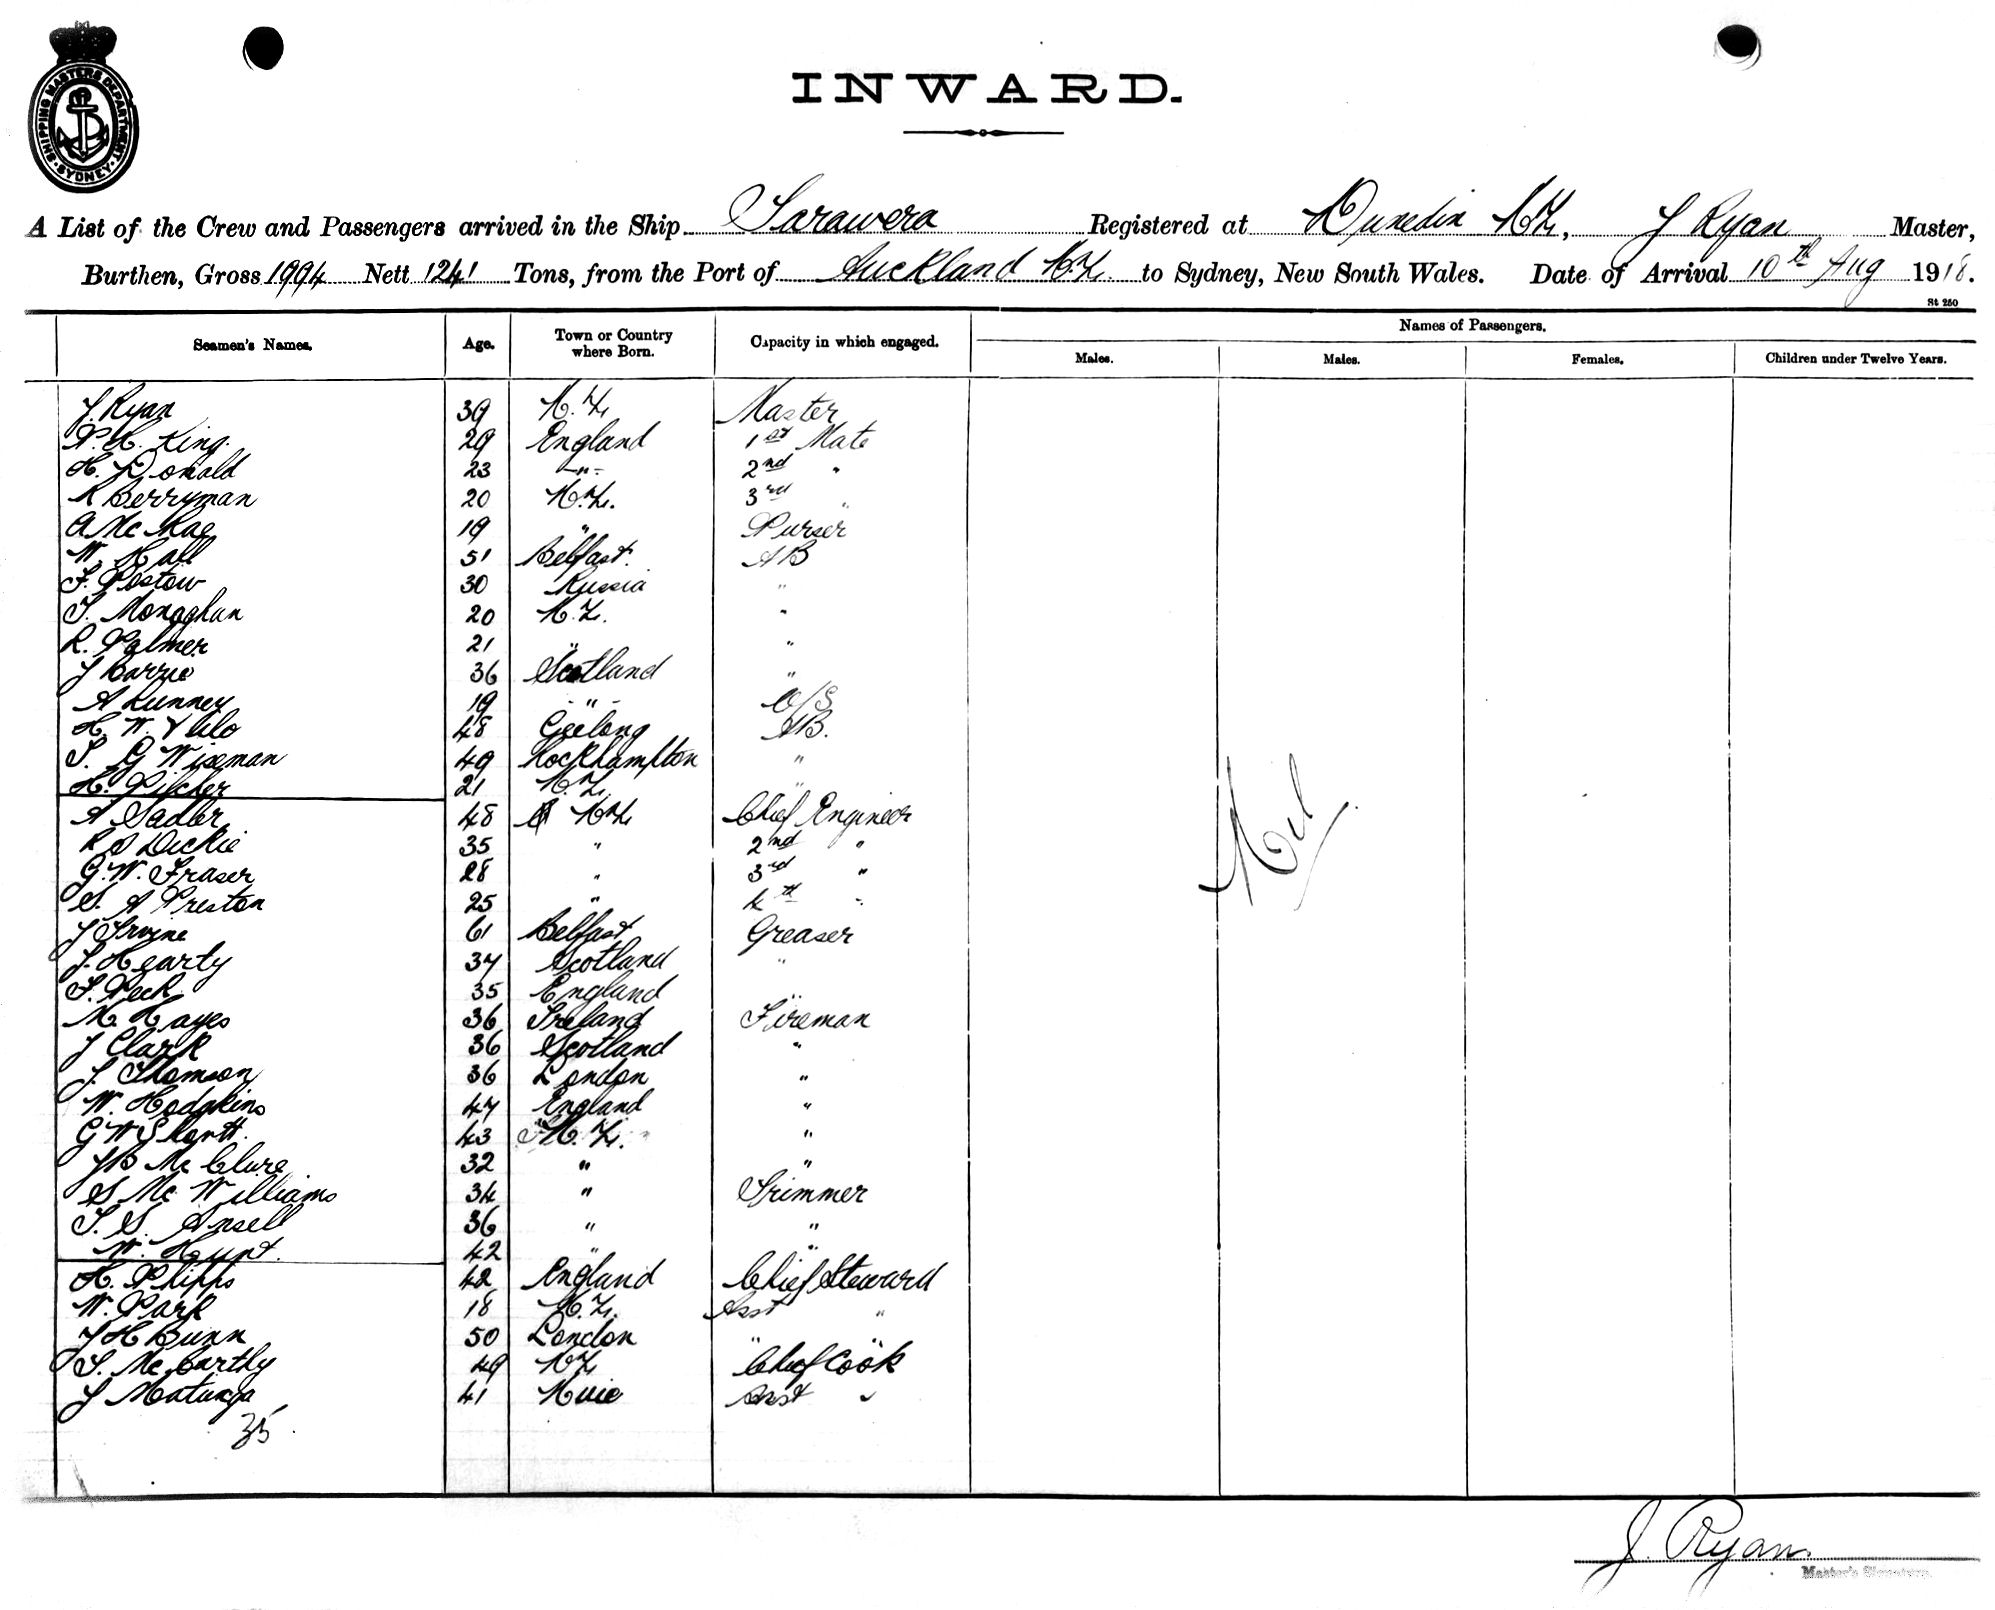 SHIPPING MASTERS DEPARTMENT SYDNEY
INWARD.
A List of the Crew and Passengers arrived in the Ship Tarawera Registered at Dunedin N.Z., J Ryan Master,
Burthen, Gross 1994 Nett 1241 Tons, from the Port of Auckland N.Z. to Sydney, New South Wales. Date of Arrival 10th Aug 1918.
St 250
Seamen's Names. Age. Town or Country where Born. Capacity in which engaged. Names of Passengers.
Males. Males. Females. Children under Twelve Years.
J. Ryan 39 N.Z. Master
King. 29 England 1st Mate
H. Donald 23 -"- 2nd "
R Berryman 20 N.Z. 3rd "
A McRae 19 " Purser
W. Hall 51 Belfast. AB
F. Postow 30 Russia "
T. Monaghan 20 N.Z. "
R. Palmer 21 " "
J Barrie 36 Scotland "
A Lunney 19 -"- O/S
H. W. 48 Geelong AB.
T. G Wiseman 49 Rockhampton "
H. Pilcher 21 N.Z. "
A Sadler 48 N.Z. Chief Engineer
R S Dickie 35 " 2nd "
G. W. Fraser 28 " 3rd "
S. A Preston 25 " 4th "
J Irvine 61 Belfast Greaser
J. Hearty 37 Scotland "
F. Peck 35 England "
M. Hayes 36 Ireland Fireman
J Clark 36 Scotland "
J. Thomson 36 London "
W. Hodgkins 47 England "
G W Shortt. 43 N.Z. "
J B McClure 32 " "
S. McWilliams 34 " Trimmer
T. S. Ansell 36 " "
W. Hunt. 42 " "
H. Phipps 42 England Chief Steward
W. Park 18 N.Z. Asst "
J H Bunn 50 London " "
T. McCarthy 49 NZ Chief Cook
J Matunga 41 Niue Asst "
35.
Nil
J. Ryan.
Master's Signature.